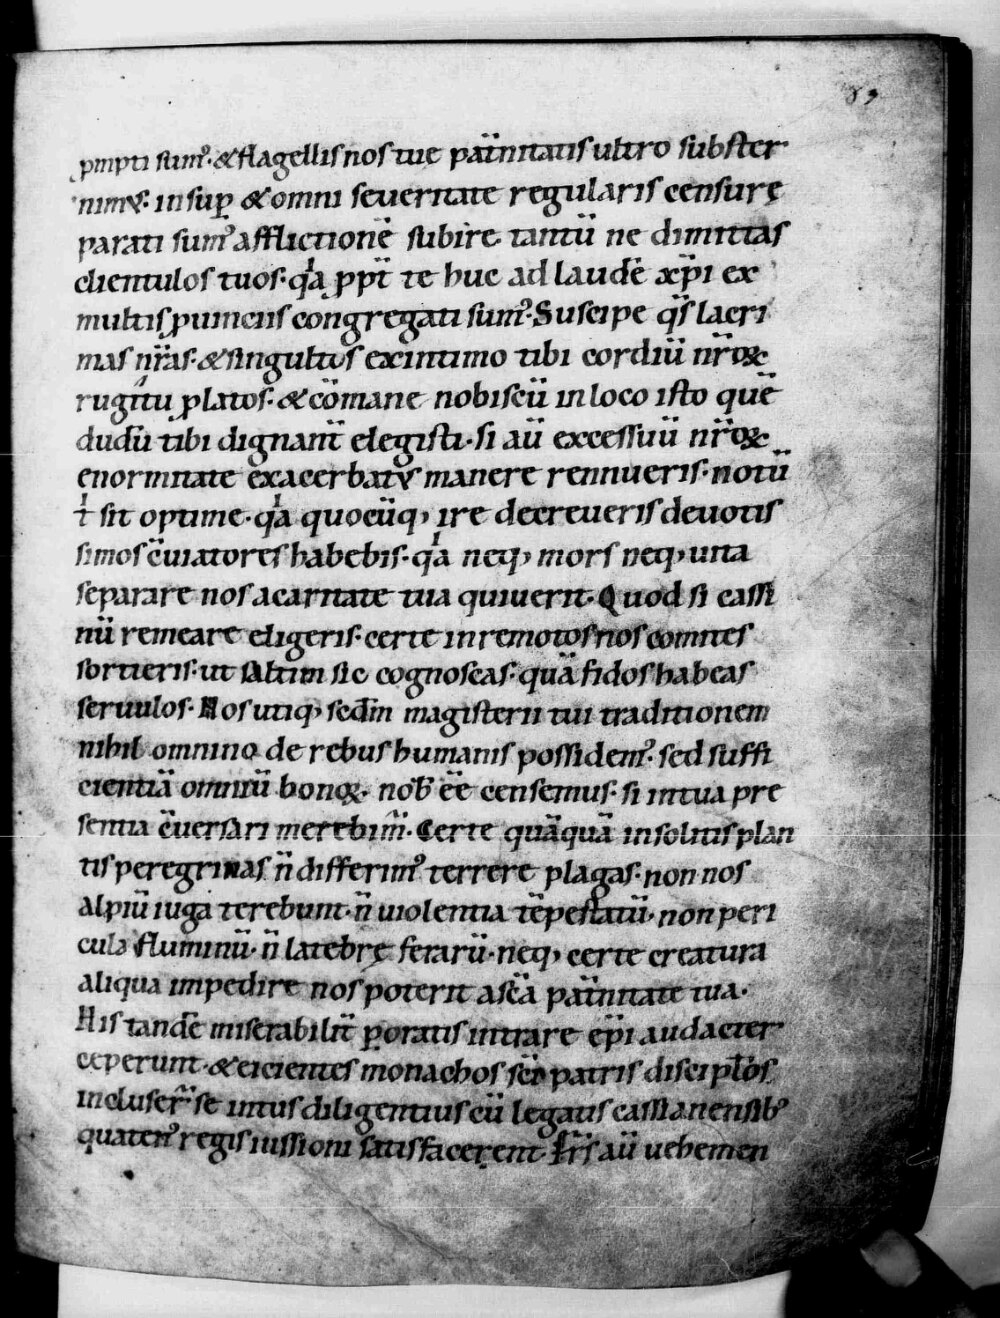 89
ꝓmpti sumꝰ· & flagellis nos tue pat̄nitatis ultro subster
nimus· insuꝑ & omni seueritate regularis censurę
parati sumꝰ afflictionē subire· tantū ne dimittas
clientulos tuos· qͥa ꝓpt̄ te huc ad laudē xp̄i ex
multis ꝓuinciis congregati sumꝰ· Suscipe qs̄ lacri
mas nr̄as· & singultus ex intimo tibi cordiū nr̄oꝝ
rugitu ꝓlatos· & cōmane nobiscū in loco isto quē
dudū tibi dignant̄ elegisti· si aū excessuū nr̄oꝝ
enormitate exacerbatus manere rennueris· notū
t ͥ sit optime· qͥa quocūq; ire decreueris deuotis
simos c̄uiatores habebis· qͥa neq; mors neq; uita
separare nos a caritate tua quiuerit· Quod si cassi
nū remeare eligeris· certe in remotos nos comites
sortieris· ut saltim sic cognoscas· quā fidos habeas
seruulos· Nos utiq; scd̄m magisterii tui traditionem
nihil omnino de rebus humanis possidemꝰ· sed suffi
cientiā omniū bonoꝝ· nob̄ eē̄ censemus· si in tua pre
sentia c̄uersari merebim̄· Certe quāquā insolitis plan
tis peregrinas n̄ differimꝰ terrere plagas· non nos
alpiū iuga terebunt· n̄ uiolentia tēpestatū· non peri
cula fluminū· n̄ latebrę ferarū· neq; certe creatura
aliqua impedire nos poterit a sc̄a pat̄nitate tua·
His tandē miserabilit̄ ꝑoratis intrare ep̄i audacter
ceperunt· & eicientes monachos sc̄i patris discipl̄os
incluser̄ se intus diligentius cū legatis cassianensibꝰ
quatenꝰ regis iussioni satisfacerent· Fr̄s aū uehemen